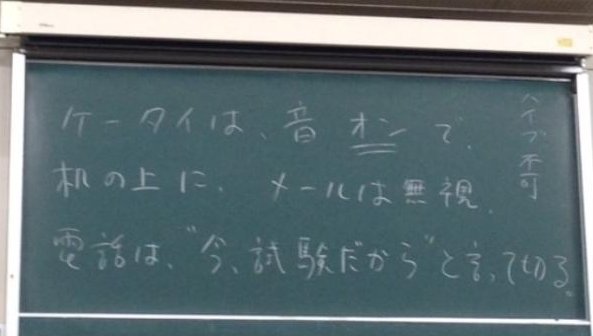 ケータイは、音オンで、
机の上に、メールは無視。
電話は、"今、試験だから"と言って切る。
バイブ不可